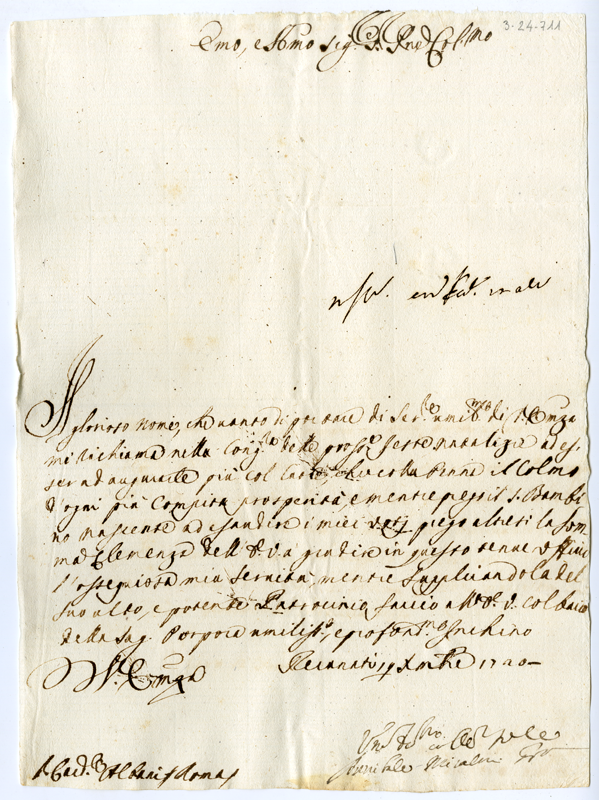 3-24-711
Emo, e Rmo Sig. Pne Col.mo
Il
glorioso nome, che vanto di portare di Ser.re umil.mo di V. Emza
mi richiama nella Cong.ra delle pross.e feste natalizie ad es-
ser ad augurarle più col che colla Penna il Colmo
d'ogni più Compita prosperità, e mentre prego il S. Bambi-
no nascente ad esaudire i miei voti, priego altresì la Som-
ma Clemenza dell' E.V. a gradire in questo tenue
l'ossequiosa mia Servitù, mentre Supplicandola del
suo alto, e potente Patrocinio, faccio all' E. V. col bacio
della Sag. Porpora umiliss.o, e profond.mo Inchino
Di V. Emza
Recanati 19 Xmbre 1720
Annibale
Card. Albani Roma